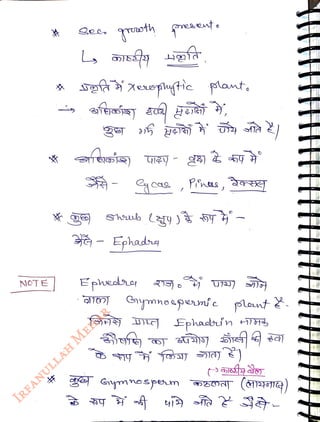 * Sec. growth present.
↳ काष्ठीय प्रकृति.
* प्रकृति में Xerophytic plant.
→ अधिकांश ठण्डे प्रदेशों में,
कुछ गर्म प्रदेशों में पाये जाते हैं|
* अधिकांश पादप - वृक्ष के रूप में
जैसे - Cycas, Pinus,
* कुछ shrub (क्षुप) के रूप में -
जैसे - Ephadra
NOTE
Ephedra राज० में पाया जाने
वाला Gymnospermic plant है -
जिससे प्राप्त Ephadrin नामक
औषधि का उपयोग खाँसी की दवा
के रूप में किया जाता है|
(→ काष्ठीय बेल
* कुछ Gymnosperm कठलता (लायनाज)
के रूप में भी पाये जाते हैं जैसे -
IRFANULLAH